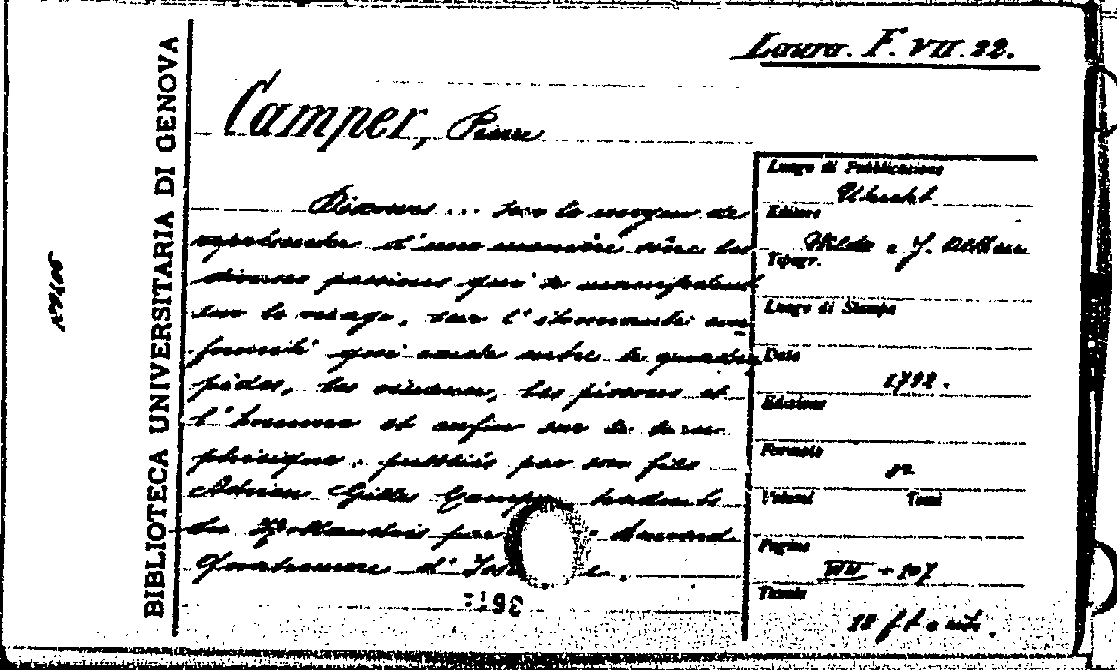 BIBLIOTECA UNIVERSITARIA DI GENOVA
Laura. F. VII. 22.
Camper, Pierre
Discours ... sur le moyen de
représenter d'une manière sûre les
diverses passions qui se manifestent
sur le visage, sur l'étonnante con
formité qui existe entre les quadru
pèdes, les oiseaux, les poissons et
l'homme et enfin sur le beau
phisique. publiés par son fils
Adrien Gilles Camper traduits
du Hollandais par Denis Bernard
Quatremere d'
Luogo di Pubblicazione
Utrecht
Editore
Wilde e J. Altheer
Tipogr.
Luogo di Stampa
Data
1792.
Edizione
Formato
Volumi Tomi
Pagine
VIII - 107
Tavole